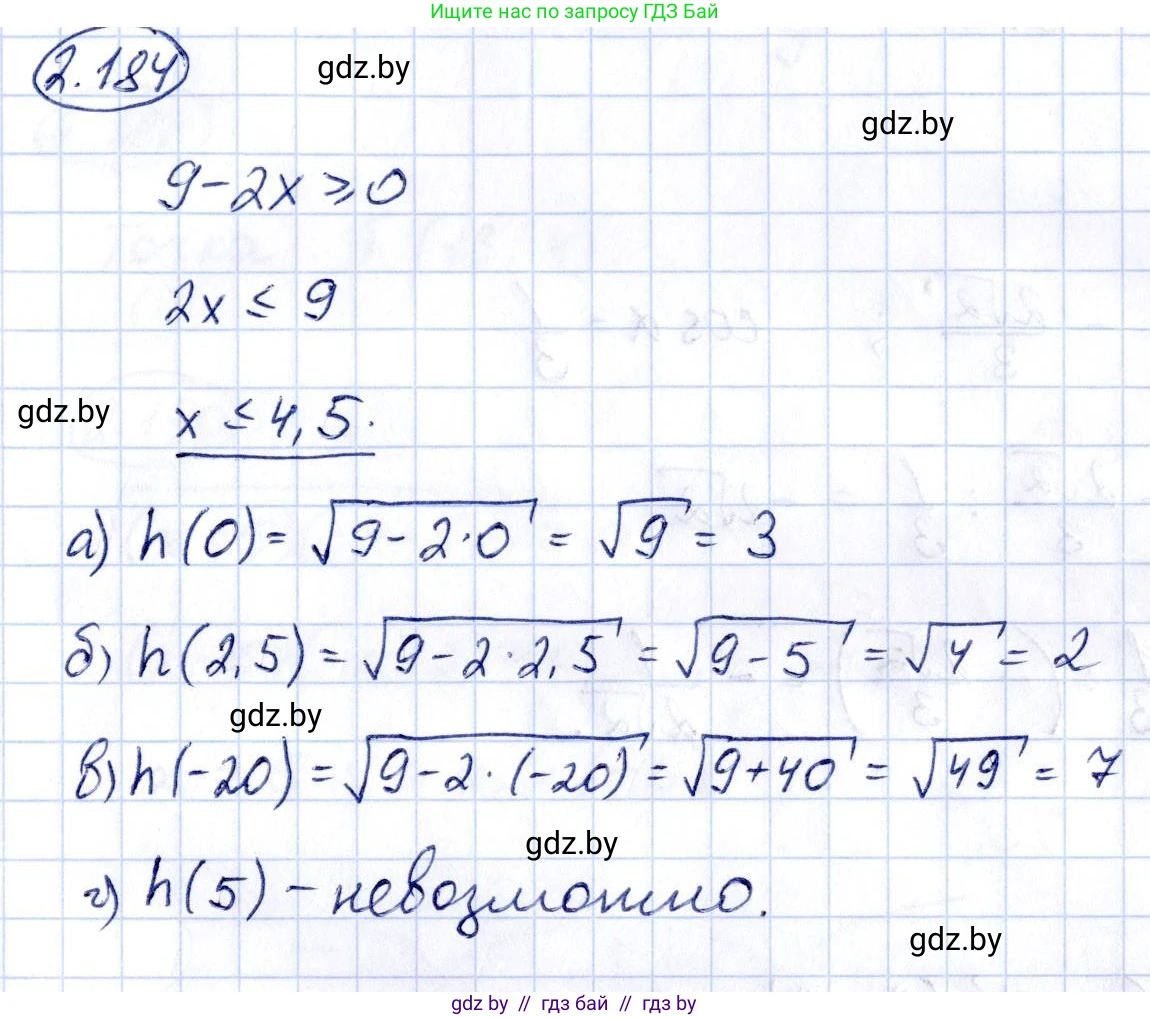 Ищите нас по запросу ГДЗ Бай
2.184
gdz.by
gdz.by
9-2x ≥ 0
2x ≤ 9
gdz.by
x ≤ 4,5.
а) h(0) = √(9-2·0) = √9 = 3
б) h(2,5) = √(9-2·2,5) = √(9-5) = √4 = 2
gdz.by
в) h(-20) = √(9-2·(-20)) = √(9+40) = √49 = 7
gdz.by
г) h(5) - невозможно.
gdz.by
gdz by // гдз бай // гдз by